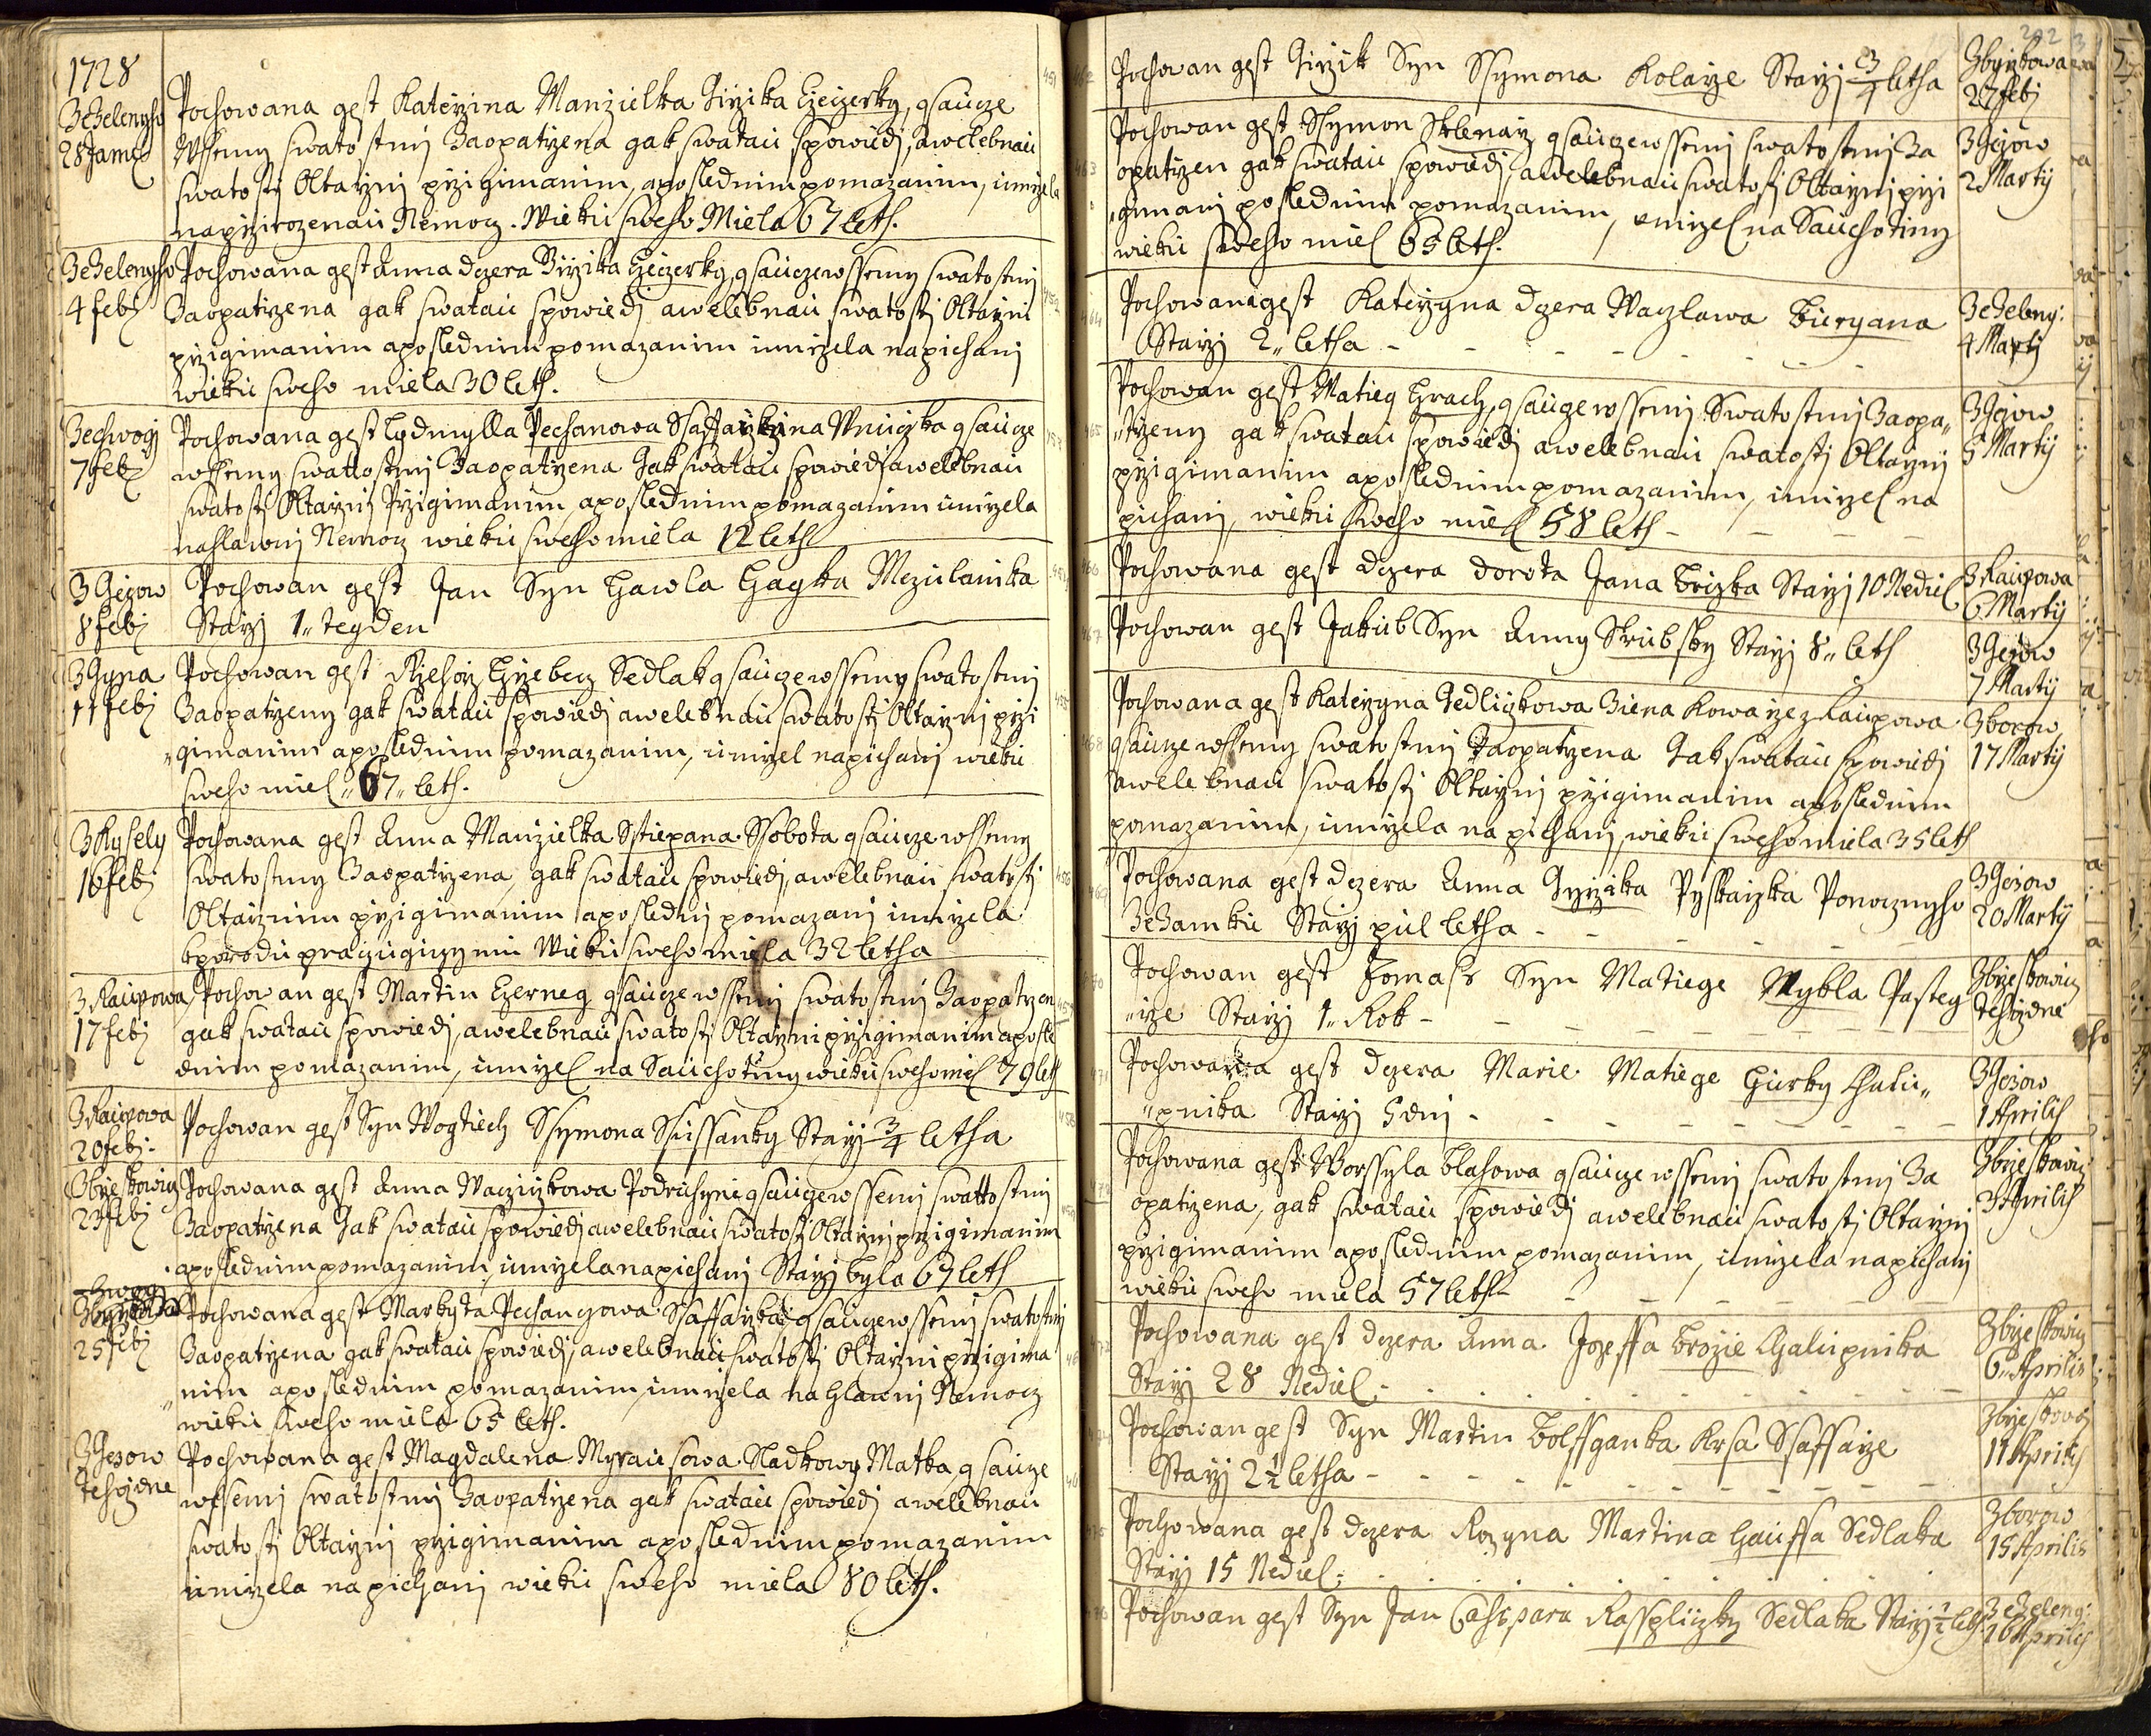 1728
ZeZelenyho
28 Janu
Pochowana gest Kateržina Manžielka Giržika Czeczerky, gsaucze
Wssemy swatostmi Zaopatržena gak swatau spowiedj, awelebnau
swatosti Oltaržnj pržigimanim, aposlednim pomazanim, umržela
napržirozenau Nemocz. Wieku sweho Miela 67 leth.
ZeZelenyho
4 febr
Pochowana gest Anna dczera Giržika Czeczerky, gsauczewssemy swatostmi
Zaopatržena gak swatau spowiedj awelebnau swatosti Oltaržni
pržigimanim aposlednim pomazanim umržela napichanj
wieku sweho miela 30 leth.
Zechwog
7 feb
Pochowana gest Lydmylla Pechanowa Ssaffaržkina Wnuczka gsaucze
wssemy swattostmi Zaopatržena Gak swatau spowiedj awelebnau
swatosti Oltaržnj Pržigimanim, aposlednim pomazanim umržela
nahlawnj Nemocz wieku sweho miela 12 leth
ZGezow
8 febr
Pochowan gest Jan Syn Hawla Hagka Mezulanika
Starži 1 tegden
ZGyna
11 febr
Pochowan gest Ržehorž Hržebecz Sedlak gsauczewssemy swatostmi
Zaopatrženy gak swatau spowiedj awelebnau swatosti Oltaržnj prži
gimanim aposlednim pomazanim, umržel napichanj wieku
sweho miel 67 leth.
ZKysely
16 febr
Pochowana gest Anna Manžielka Sstiepana Ssobota gsaucze wssemy
swatostmy Zaopatržena, gak swatau spowiedj, awelebnau swatosti
Oltaržnim pržigimanim aposlednj pomazanj umržela
kporodu praczugiczymu Wieku sweho miela 32 letha
ZRaupowa
17 febr
Pochowan gest Martin Czerneg gsaucze wssemj swatostmi Zaopatržen
gak swatau spowiedj, awelebnau swatosti Oltaržni pržigimanim aposle
dnim pomazanim, umržel na Sauchotiny wieku sweho miel 79 leth
ZRaupowa
20 febr.
Pochowan gest Syn Wogtiech Ssymona Ssussanky Starži 3/4 letha
Zbrzeskowicz
23 febr
Pochowana gest Anna Waczlickowa Podruhyně gsauczewssemj swattostmi
Zaopatržena Gak swatau spowiedj awelebnau swatosti Oltaržnj pržigimanim
aposlednim pomazanim, umržela napichanj Starži byla 67 leth
25 febr
Pochowana gest Markyta Pechanczowa Ssaffaržka gsauczewssemj swatostmi
Zaopatržena gak swatau spowiedj, awelebnau swatosti Oltaržni pržigima
nim aposlednim pomazanim, umržela na hlawnj Nemocz
wieku sweho miela 65 leth.
ZGezow
Tehoždne
Pochowana gest Magdalena Mrausowa Sladkowy Matka, gsaucze
wssemj swatostmi Zaopatržena gak swatau spowiedj awelebnau
swatosti Oltaržnj pržigimanim aposlednim pomazanim
umržela napichanj wieku sweho miela 80 leth.
202
Pochowan gest Giržik Syn Ssymona Kolarže Starži 3/4 letha
27 febr
463
Pochowan gest Ssymon Sklenarž gsauczewssemj swatostmi Za
opatržen gak swatau spowiedj, awelebnau swatosti Oltaržnj prži
gimanj poslednim pomazanim, umržel na Sauchotiny
wieku sweho miel 65 leth.
ZGezow
2 Martij
464
Pochowana gest Kateržyna dczera Waczlawa Buryana
Starži 2 letha
ZeZeleny:
4 Martij
465
Pochowan gest Matieg Hrach, gsauczewssemj Swatostmi Zaopa
trženy gak swatau spowiedj awelebnau swatosti Oltaržnj
pržigimanim aposlednim pomazanim, umržel na
pichanj, wieku sweho miel 58 leth
ZGezow
5 Martij
466
Pochowana gest dczera dorota Jana Bržizka Starži 10 Nediel
ZRaupowa
6 Martij
467
Pochowan gest Jakub Syn Anny Skrubsky Starži 8 leth
ZGezow
7 Martij
468
Pochowana gest Kateržyna Gedliczkowa Ziena Kowarže zRaupowa
gsaucze wssemy swatostmi Zaopatržena Gak swatau spowiedj
awelebnau swatosti Oltaržnj pržigimanim aposlednim
pomazanim, umržela na pichanj, wieku sweho miela 35 leth
Zborow
17 Martij
469
Pochowana gest dczera Anna Giržika Pyskaržka Ponocznyho
ZeZamku Starži pul letha
ZGezow
20 Martij
470
Pochowan gest Tomass Syn Matiege Wybla Pastey
ržе Starži 1 Rok
Zbrzeskowicz
Tehoždne
471
Pochowana gest dczera Marie Matiege Hurky Chalu
pnika Starži 5 dnj
ZGezow
1 Aprilis
Pochowana gest Worssyla Blahowa gsaucze wssemj swatostmi Za
opatržena, gak swatau spowiedj awelebnau swatosti Oltaržnj
pržigimanim aposlednim pomazanim, umržela napichanj
wieku sweho miela 57 leth
Zbrzeskowicz
3 Aprilis
Pochowana gest dczera Anna Jozeffa Brožie Chalupnika
Starži 28 Nediel
Zbrzeskowicz
6 Aprilis
Pochowan gest Syn Martin Bolfganka Krsa Ssaffarže
Starži 2 1/2 letha
Zbrzeskowicz
11 Aprilis
475
Pochowana gest dczera Rozyna Martina Hauffa Sedlaka
Starži 15 Nediel
Zborow
15 Aprilis
476
Pochowan gest Syn Jan Casspara Rasspliczky Sedlaka Starži 1/2 leth
ZeZeleny:
16 Aprilis